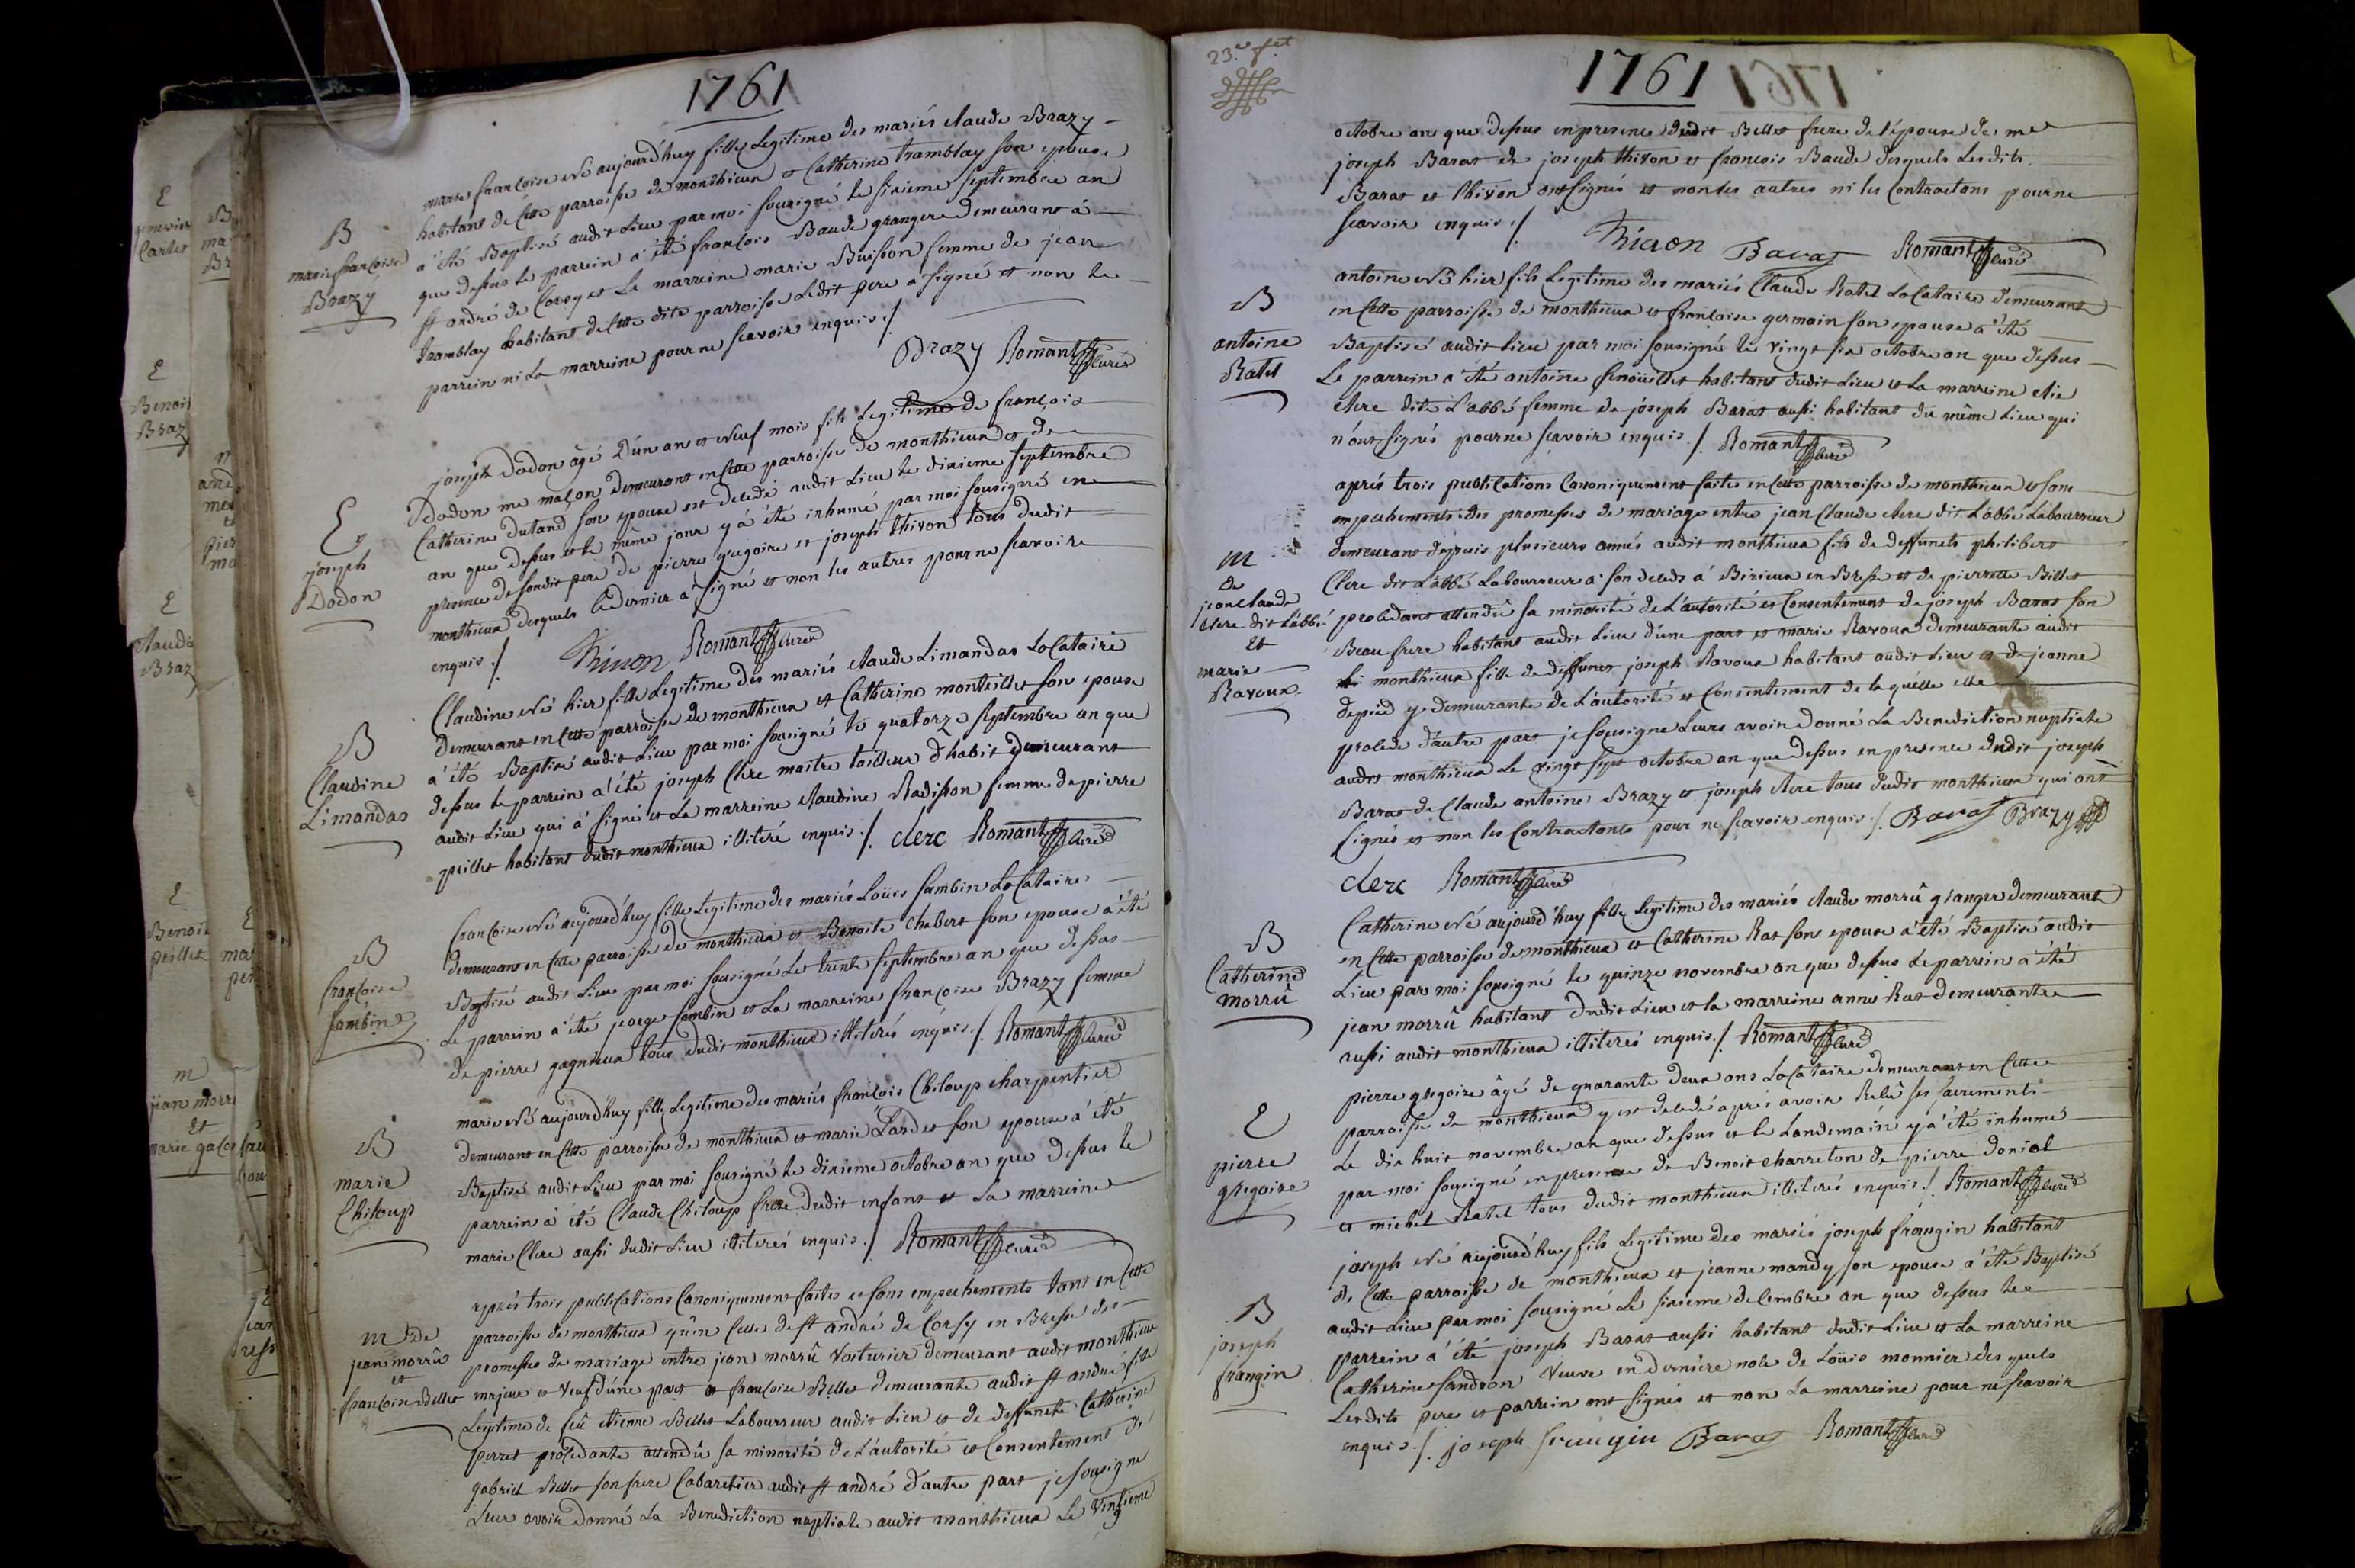 1761
B
marie françoise
Brazy
marie françoise Né aujourd'huy fille Legitime des mariés claude Brazy
habitant de Cette parroisse de monthieux et Catherine tramblay son epouse
a été Baptisé audit Lieu par moi sousigné le sixieme septembre an
que dessus le parrein a été françois Baude granger demeurant á
st andré de Corcy et La marreine marie Buisson femme de jean
tramblay habitant de Cette dite parroisse Ledit pere a signé et non le
parrein ni La marreine pour ne scavoir enquis ./
Brazy Romant Curé
E
joseph
Dodon
joseph Dodon âgé D'un an et Neuf mois fils Legitime de françois
Dodon me maçon demeurant en Cette parroisse de monthieux et de
Catherine dutand son epouse est decedé audit Lieu le dixieme septembre
an que dessus et le même jour y a été inhumé par moi sousigné en
presence de sondit pere de pierre gregoire et joseph thivon tous dudit
monthieux desquels Ledernier a signé et non les autres pour ne scavoir
enquis ./ Thivon Romant Curé
B
Claudine
Limandas
Claudine Né hier fille Legitime des mariés claude Limandas LoCataire
demeurant en Cette parroisse de monthieux et Catherine monteillet son epouse
a été Baptisé audit Lieu par moi sousigné le quatorze septembre an que
dessus le parrein a été joseph Clerc maitre tailleur d'habit demeurant
audit Lieu qui a signé et La marreine claudine Radisson femme de pierre
peillet habitant dudit monthieux illiteré enquis ./. clerc Romant Curé
B
françoise
sambin
françoise Né aujourd'huy fille Legitime des mariés Loüis sambin LoCataire
demeurant en Cette parroisse de monthieux et Benoite Chabert son epouse a été
Baptisé audit Lieu par moi sousigné Le trente septembre an que dessus
Le parrein a été george sambin et La marreine françoise Brazy femme
de pierre gagnieux tous dudit monthieux illiterés enquis ./. Romant Curé
B
marie
Chiloup
marie Né aujourd'huy fille Legitime des mariés françois Chiloup charpentier
demeurant en Cette parroisse de monthieux et marie Lardet son epouse a été
Baptisé audit Lieu par moi sousigné le dixieme octobre an que dessus le
parrein a été Claude Chiloup frere dudit enfant et La marreine
marie Clerc aussi dudit Lieu illiterés enquis ./ Romant Curé
m de
jean morrû
et
françoise Bellet
aprés trois publications Canoniquement faites et sans empechements tant en Cette
parroisse de monthieux qu'en Celle de st andré de Corsy en Bresse des
promesses de mariage entre jean morrû Voiturier demeurant audit monthieux
majeur et Veuf d'une part et françoise Bellet demeurante audit st andré fille
Legitime de feû etienne Bellet Labourreur audit Lieu et de deffuncte Catherine
perret procedante attendû sa minorité de L'autorité et Consentement de
gabriel Bellet son frere Cabaretier audit st andré d'autre part je sousigné
Leur avoir donné La Benediction nuptiale audit monthieux Le Vingtieme
23.e f.et
1761
octobre an que dessus en presence dudit Bellet frere de l'épouse de me
joseph Barat de joseph thivon et françois Baude desquels Lesdits
Barat et thivon ont signés et non les autres ni les Contractans pour ne
scavoir enquis ./ Thivon Barat Romant Curé
B
antoine
Ratel
antoine Né hier fils Legitime des mariés Claude Ratel LoCataire demeurant
en Cette parroisse de monthieux et françoise germain son epouse a été
Baptisé audit Lieu par moi sousigné le vingt six octobre an que dessus
Le parrein a été antoine fenoüillet habitant dudit Lieu et La marreine
clerc dite L'abbé femme de joseph Barat aussi habitant du même Lieu qui
n'ont signés pour ne scavoir enquis ./. Romant Curé
m
De
jean claude
clerc dit L'abbé
Et
marie
Ravoux
aprés trois publications Canoniquement faites en Cette parroisse de monthieux et sans
empechements des promesses de mariage entre jean Claude clerc dit L'abbé Labourreur
demeurant depuis plusieurs années audit monthieux fils de deffuncts philibert
Clerc dit L'abbé Labourreur a son deceds á Birieux en Bresse et de pierrette Billet
procedant attendû sa minorité de L'autorité et Consentement de joseph Barat son
Beau frere habitant audit Lieu d'une part et marie Ravoux demeurante audit
monthieux fille de deffunct joseph Ravoux habitant audit Lieu et de jeanne
depied y demeurante de L'autorité et Consentement de laquelle elle
procede d'autre part je sousigné Leurs avoir donné La Benediction nuptiale
audit monthieux Le vingt sept octobre an que dessus en presence dudit joseph
Barat de Claude antoine Brazy et joseph clerc tous dudit monthieux qui ont
signés et non les Contractants pour ne scavoir enquis ./. Barat Brazy
clerc Romant Curé
B
Catherine
morrû
Catherine Né aujourd'huy fille Legitime des mariés claude morrû granger demeurant
en Cette parroisse de monthieux et Catherine Rat sont epouse a été Baptisé audit
Lieu par moi sousigné le quinze novembre an que dessus Le parrein a été
jean morrû habitant dudit Lieu et la marreine anne Rat demeurante
aussi audit monthieux illiterés enquis ./ Romant Curé
E
pierre
gregoire
pierre gregoire âgé de quarante deux ans LoCataire demeurant en Cette
parroisse de monthieux y est decedé aprés avoir Reçû ses sacrements
Le dix huit novembre an que dessus et le Landemain y a été inhumé
par moi sousigné en presence de Benoit charreton de pierre donial
et michel Ratel tous dudit monthieux illiterés enquis ./ Romant Curé
B
joseph
frangin
joseph Né aujourd'huy fils Legitime des mariés joseph frangin habitant
de Cette parroisse de monthieux et jeanne mandy son epouse a été Baptisé
audit Lieu par moi sousigné Le sixieme decembre an que dessus le
parrein a été joseph Barat aussi habitant dudit Lieu et La marreine
Catherine sandron Veuve en derniere nole de Loüis monnier desquels
Lesdits pere et parrein ont signés et non La marreine pour ne scavoir
enquis ./. joseph frangin Barat Romant Curé